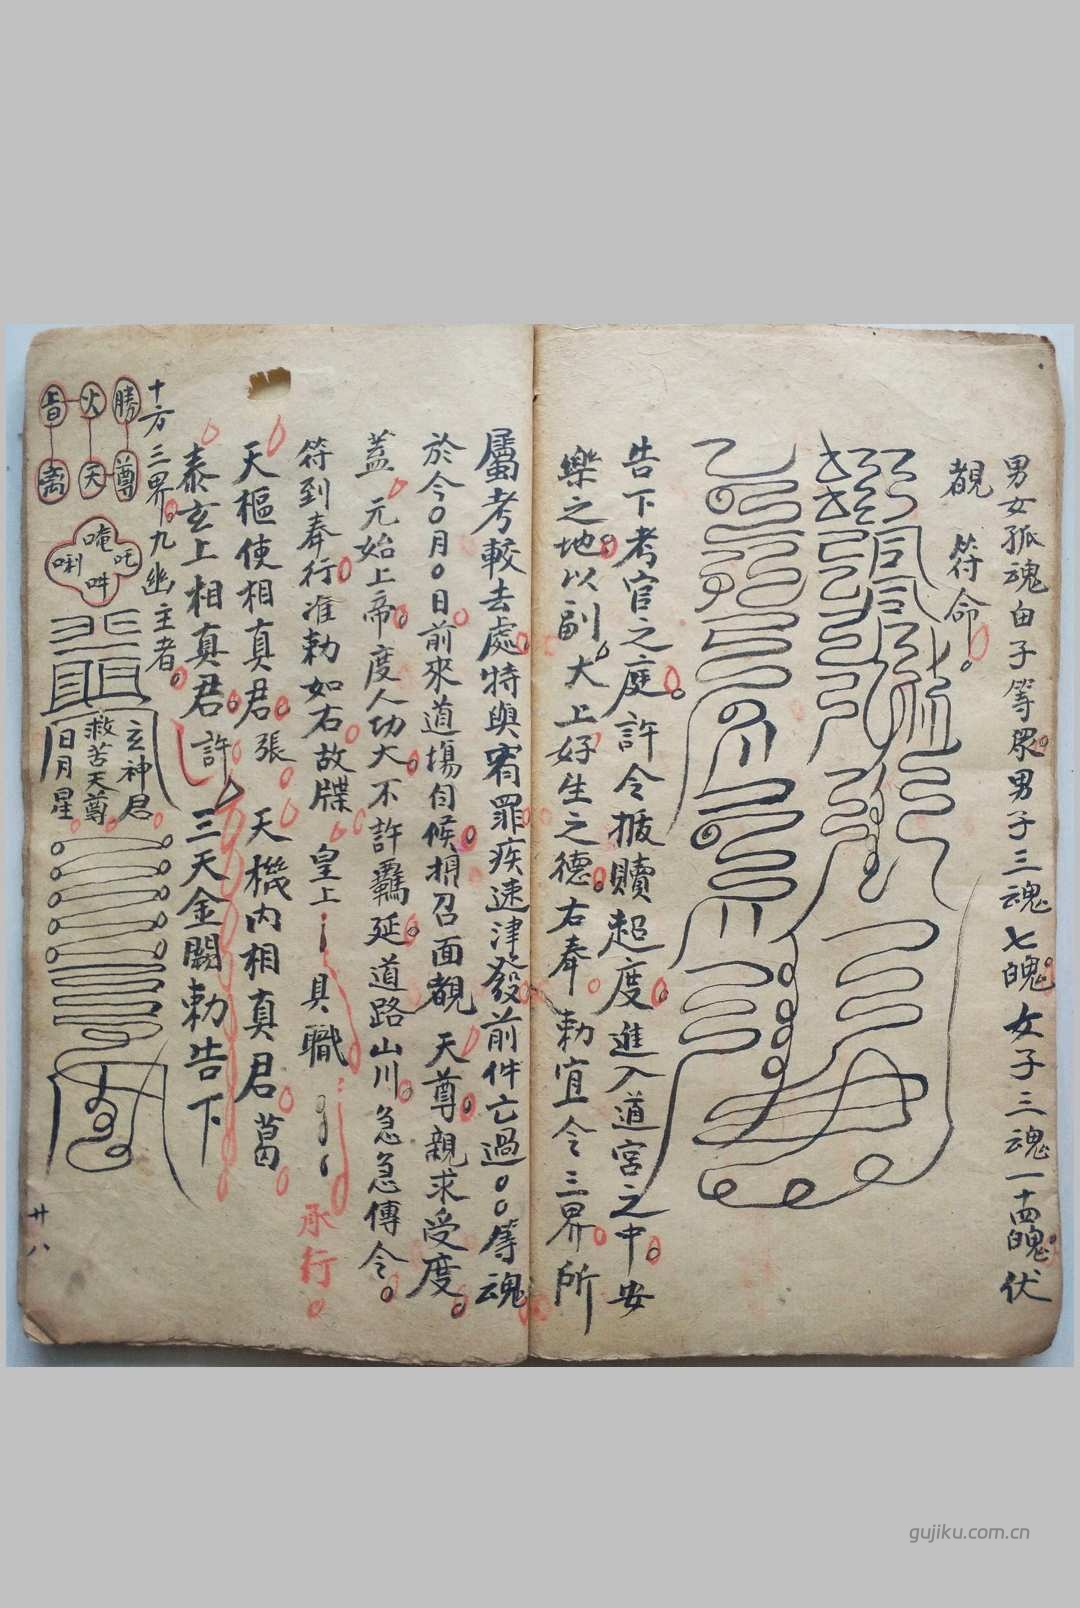 男女孤魂由子等眾男子三魂七魄女子三魂一十四魄伏
覩　符命
告下考官之庭許令拔贖超度進入道宮之中安
樂之地以副大上好生之德右奉勅宜令三界所
屬考較去處特與宥罪疾速津發前件亡過〇〇等魂
於今〇月〇日前來道場伺候捐召面覩天尊親求受度
蓋元始上帝度人功大不許羈延道路山川急急傳令
符到奉行准勅如右故牒　皇上　具職　承行
天樞使相真君張　天機內相真君葛
泰玄上相真君許　三天金闕勅告下
十方三界九幽主者
勝　火
尊　天　离
唵　吽　唎　吒
玄神君
救苦天尊
日月星
廿八
gujiku.com.cn